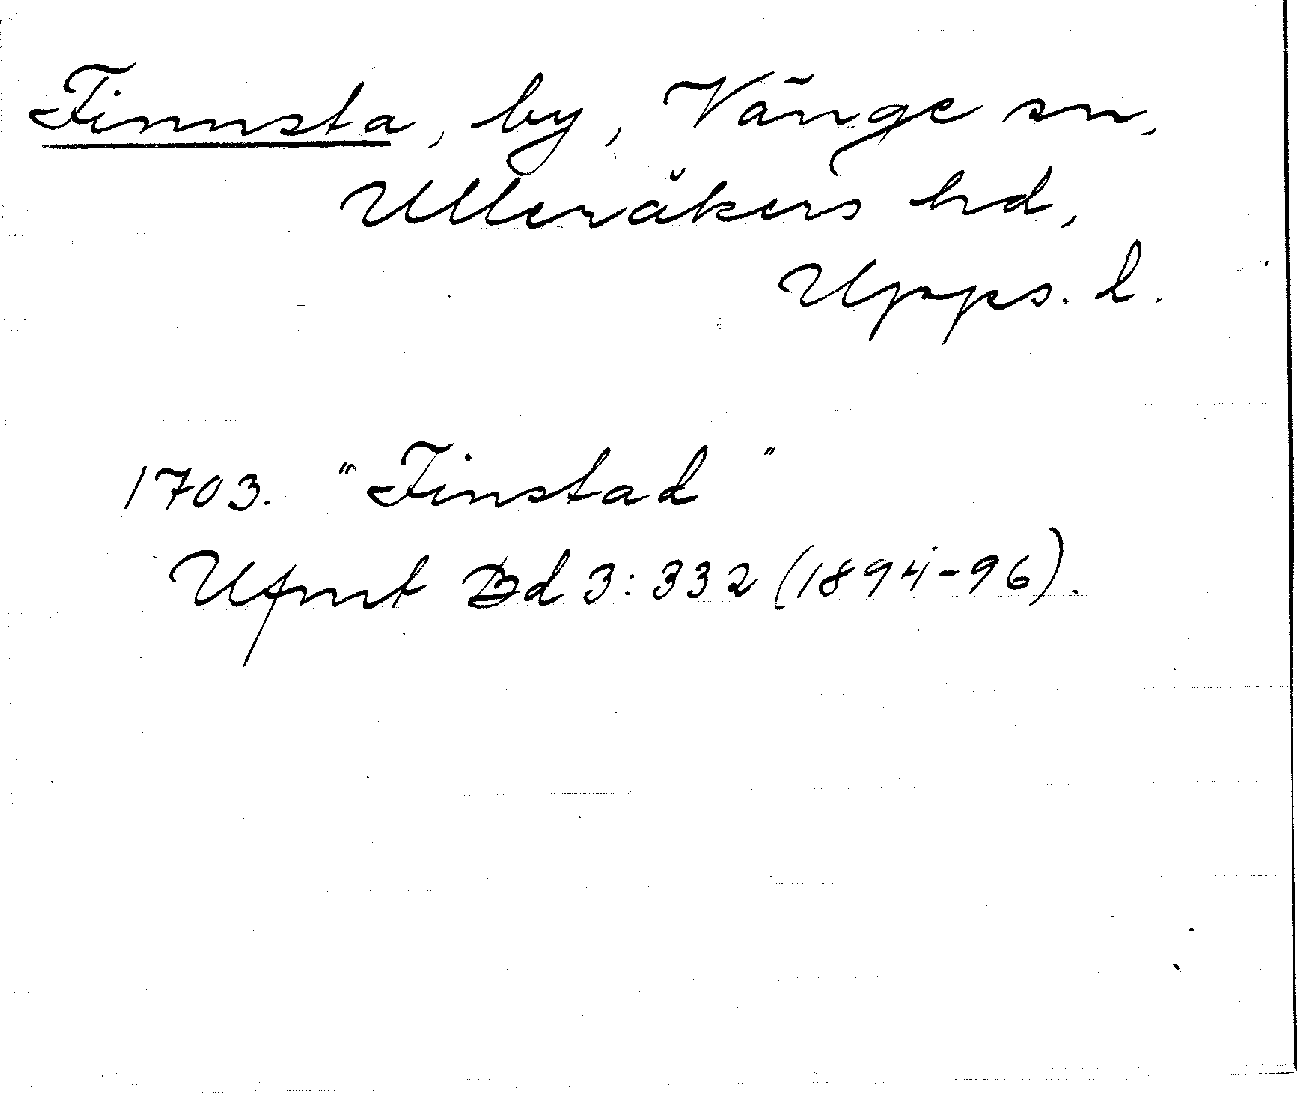 Finnsta, by, Vänge sn,
Ulleråkers hd,
Upps. l.
1703. "Finstad"
Ufmt Bd 3:332 (1894-96).